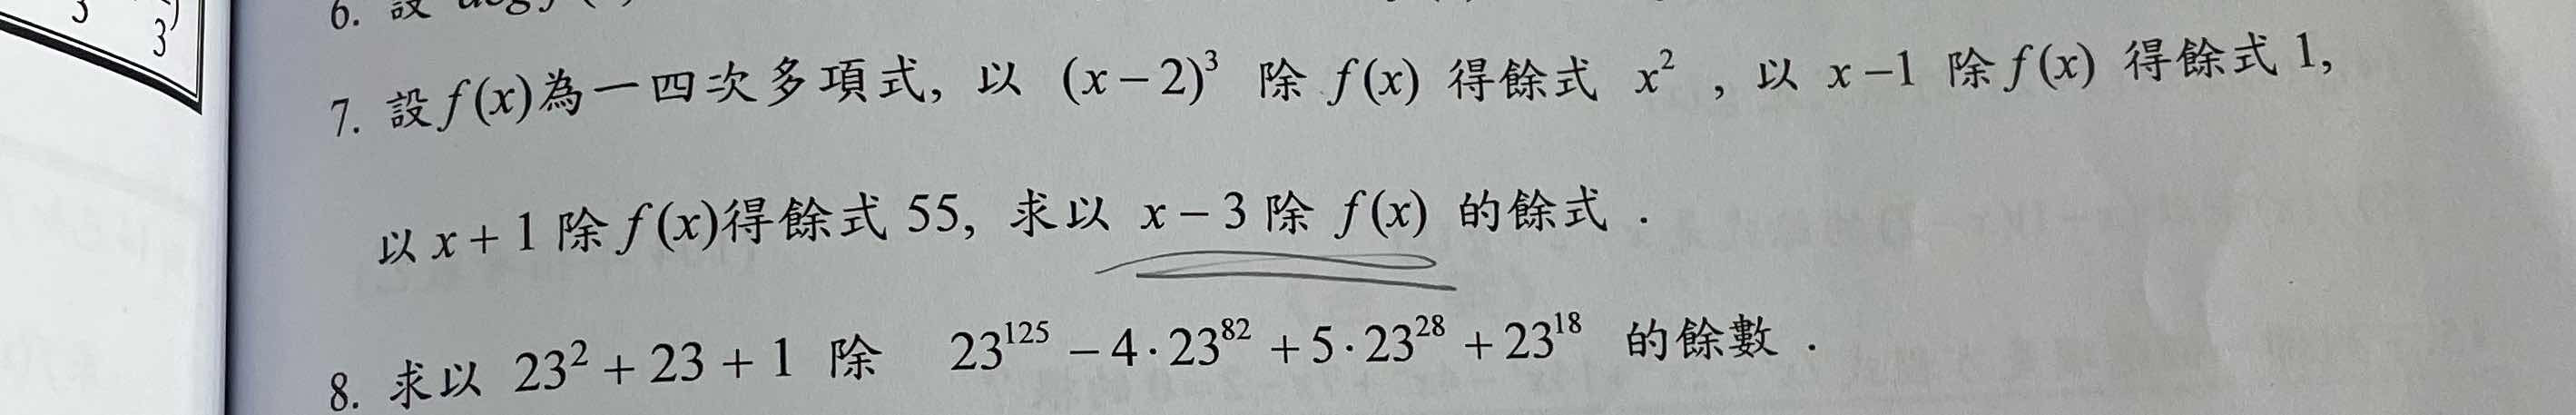 3
3
6. 設
7. 設 f(x)為一四次多項式, 以 (x−2)³ 除 f(x) 得餘式 x² , 以 x−1 除 f(x) 得餘式 1,
以 x+1 除 f(x)得餘式 55, 求以 x−3 除 f(x) 的餘式 .
8. 求以 23²+23+1 除 23¹²⁵−4·23⁸²+5·23²⁸+23¹⁸ 的餘數 .